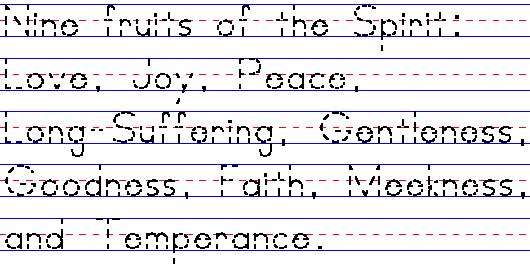 Nine fruits of the Spirit:
Love, Joy, Peace,
Long-Suffering, Gentleness,
Goodness, Faith, Meekness,
and Temperance.